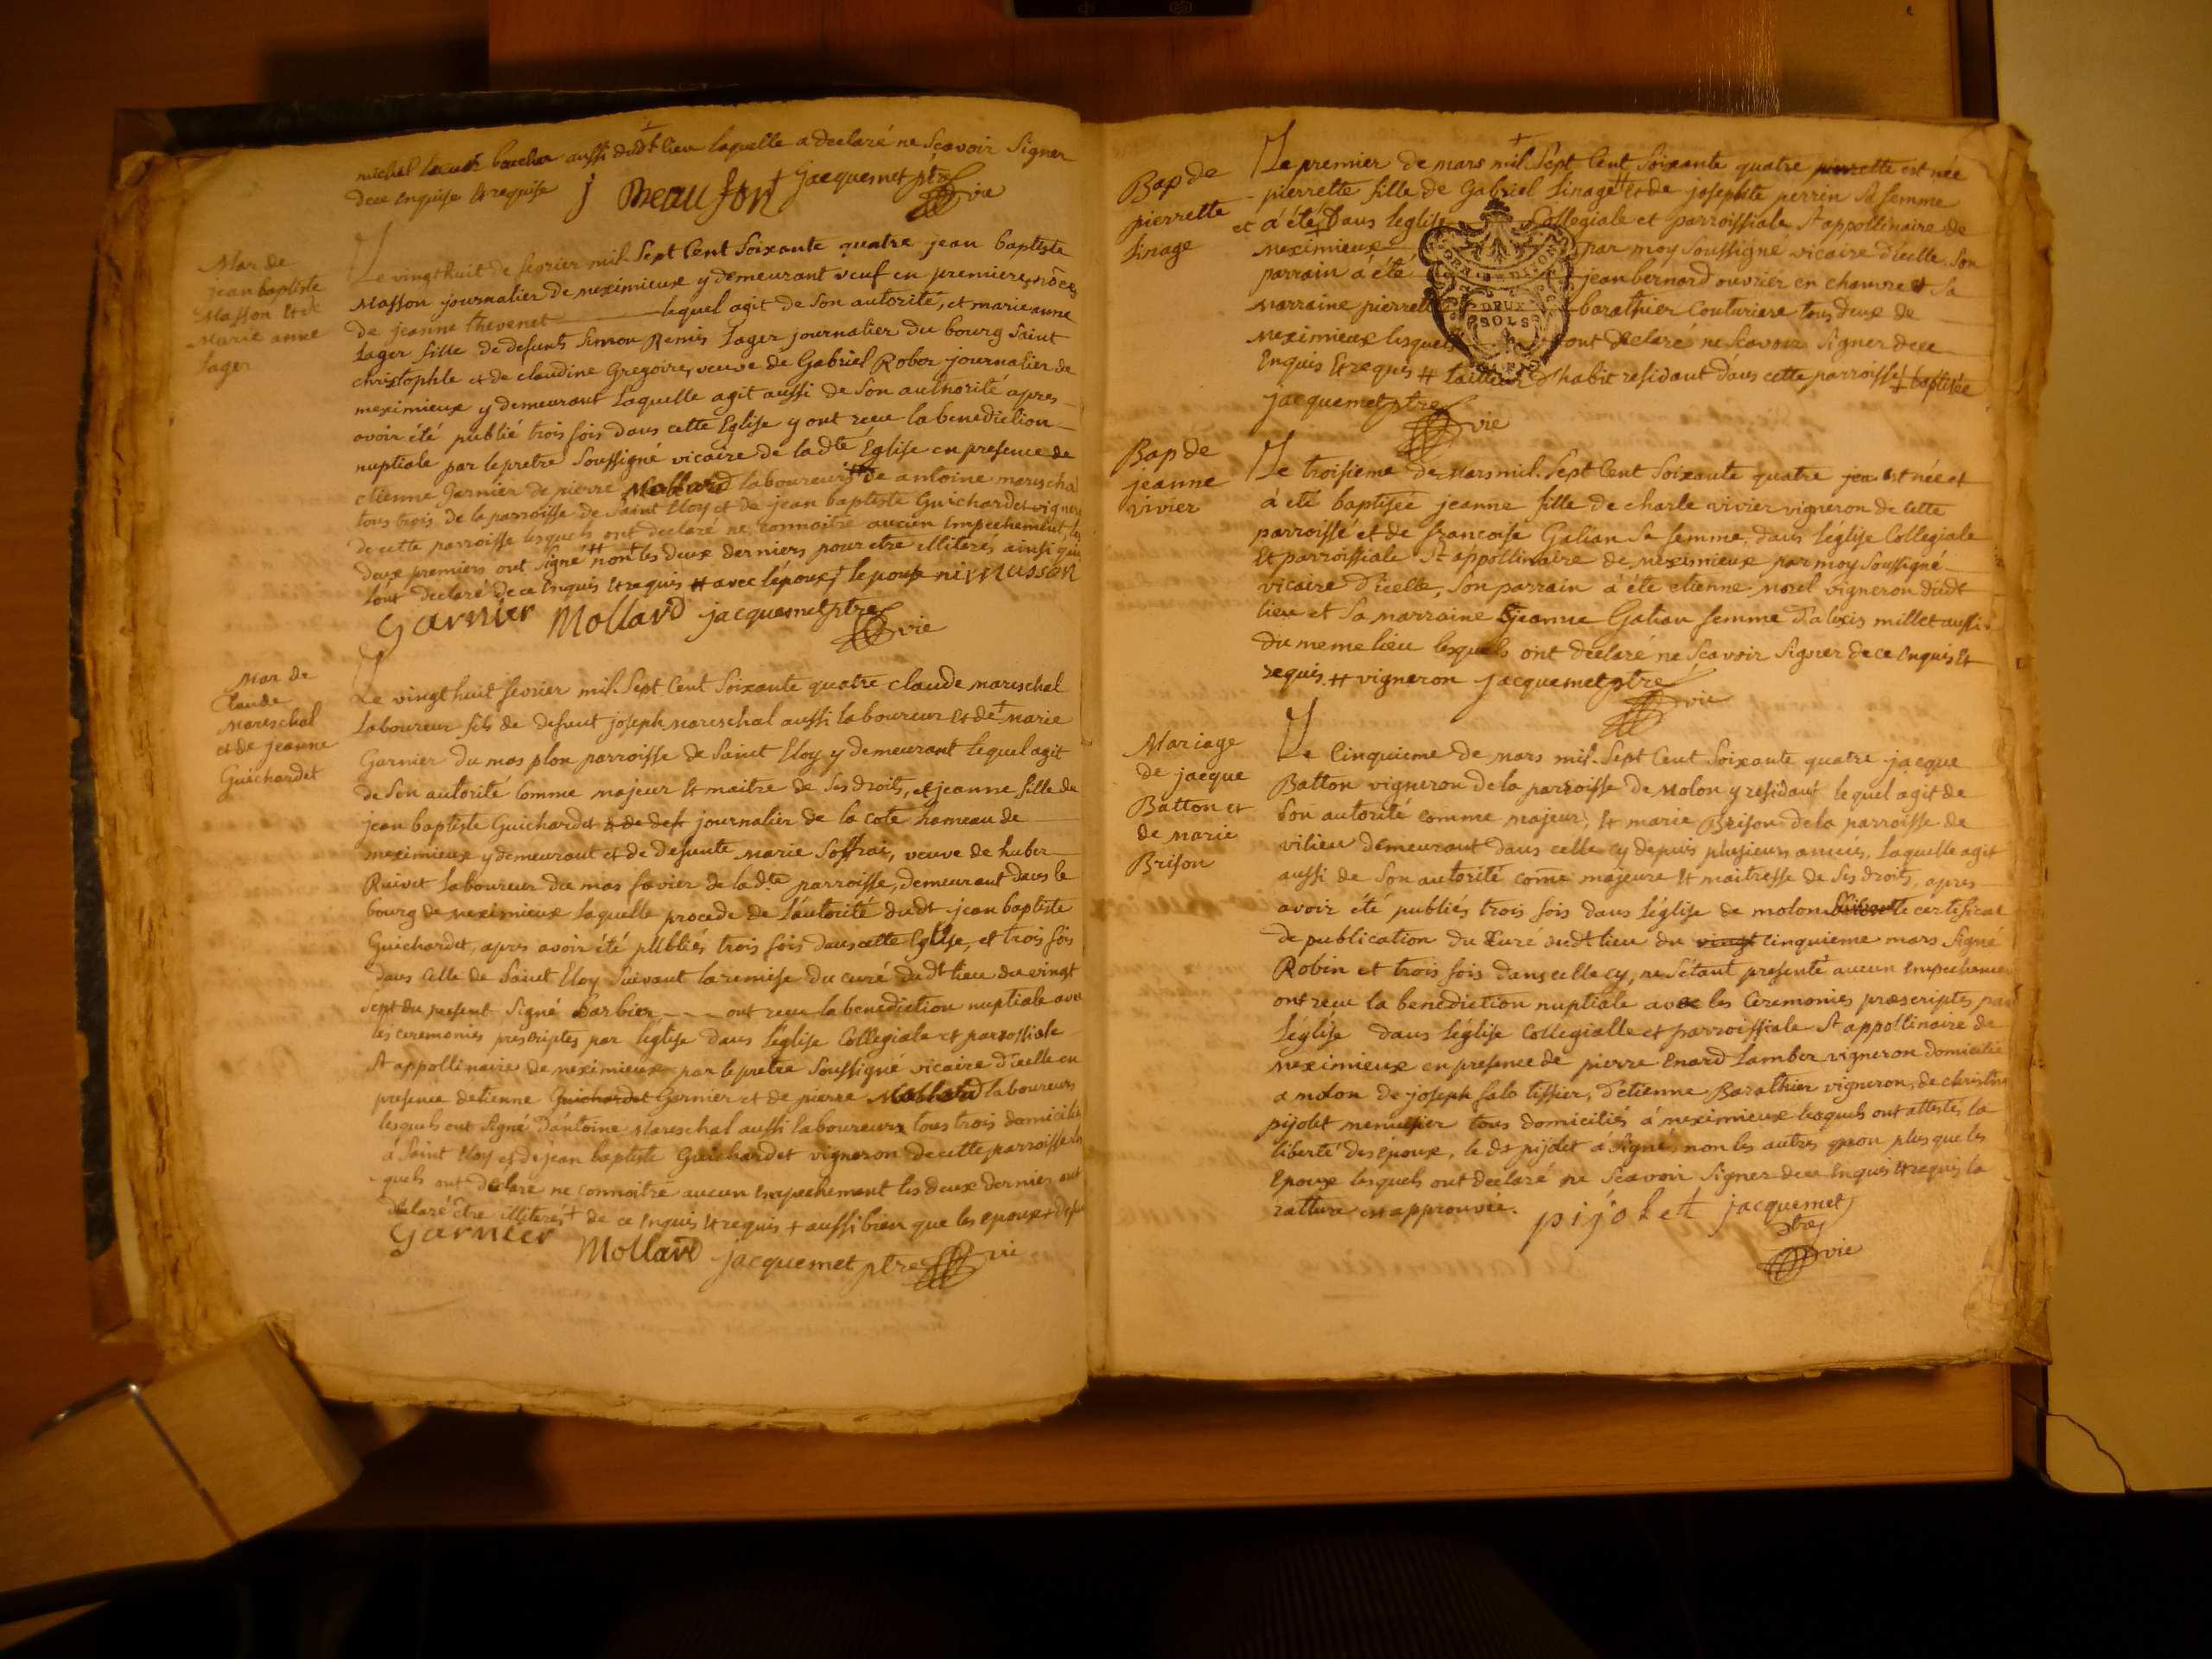 michel boucher aussi dudt lieu laquelle a declaré ne Scavoir Signer
dece enquise et requise j Beaufont jacquemet ptre vic
Mar de
jean baptiste
Masson et de
Marie anne
Lager
Le vingt huit de fevrier mil Sept Cent Soixante quatre jean baptiste
Masson journalier de meximieux y demeurant veuf en premiere nôces
de jeanne thevenet lequel agit de Son autorité, et marie anne
Lager fille de defunts Simon Remis Lager journalier du bourg Saint
christophle et de claudine Gregoire, veuve de Gabriel Rober journalier de
meximieux y demeurant Laquelle agit aussi de Son authorité apres
avoir été publié trois fois dans cette Eglise y ont recu la benediction
nuptiale par le pretre Soussigné vicaire de ladte Église en presence de
etienne Garnier de pierre Mollard laboureurs de antoine marescha
tous trois de la parroisse de Saint Eloy et de jean baptiste Guichardet vigner
de cette parroisse lesquels ont declaré ne connoitre aucun Empechement, les
deux premiers ont Signé non les deux derniers pour etre illiterés ainsi qu'il
l'ont declaré de ce Enquis et requis # avec l'époux j masson
Garnier Mollard jacquemet ptre vic
Mar de
Claude
Mareschal
et de jeanne
Guichardet
Le vingt huit fevrier mil Sept Cent Soixante quatre claude mareschal
Laboureur fils de defunt joseph mareschal aussi laboureur et de marie
Garnier du mas plon parroisse de Saint Eloy y demeurant lequel agit
de Son autorité Comme majeur et maitre de Ses droits, et jeanne fille de
jean baptiste Guichardet journalier de la Cote hameau de
meximieux y demeurant et de defunte Marie Soffrai, veuve de huber
Ruivet Laboureur du mas favier de ladte parroisse, demeurant dans le
bourg de meximieux laquelle procede de l'autorité dudt jean baptiste
Guichardet, apres avoir été publiés trois fois dans cette Eglise, et trois fois
dans Celle de Saint Eloy Suivant la remise du curé dudt lieu du vingt
sept du present Signé Barbier ont recu la benediction nuptiale avec
les ceremonies prescriptes par leglise dans l'église Collegiale et parrossiale
St appollinaire de meximieux par le pretre Soussigné vicaire d'icelle en
presence detienne Guichardet Garnier et de pierre Mollard laboureurs
lesquels ont Signé d'antoine Mareschal aussi laboureurs tous trois domiciliés
à Saint Eloy et de jean baptiste Guichardet vigneron de cette parroisse les
quels ont declaré ne connoitre aucun Empechement les deux derniers ont
declaré etre illiterés + de ce Enquis et requis + aussi bien que les epoux +
Garnier Mollard jacquemet ptre vic
Bap de
pierrette
Linage
Le premier de mars mil Sept Cent Soixante quatre pierrette est née
pierrette fille de Gabriel Linage # et de josephte perrin Sa femme
et a été dans leglise Collegiale et parroissiale St appollinaire de
meximieux par moy Soussigné vicaire d'icelle, Son
parrain a été jean bernard ouvrier en chanvre et Sa
marraine pierrette barathier Couturiere tous deux de
meximieux lesquels ont declaré ne Scavoir Signer dece
Enquis et requis # tailleur d'habit residant dans cette parroisse + baptisée
jacquemet ptre vic
DEUX
SOLS
Bap de
jeanne
vivier
Le troisieme de Mars mil Sept Cent Soixante quatre jea est née et
à eté baptisée jeanne fille de charle vivier vigneron de Cette
parroisse et de francoise Galian Sa femme, dans l'église Collegiale
et parroissiale St appollinaire de meximieux par moy Soussigné
vicaire d'icelle, Son parrain à éte etienne morel vigneron dudt
lieu et Sa marraine jeanne Galian femme d'alexis millet aussi #
du meme lieu lesquels ont declaré ne Scavoir Signer de ce Enquis et
requis # vigneron jacquemet ptre vic
Mariage
de jacque
Batton et
de marie
Brison
Le Cinquieme de mars mil Sept Cent Soixante quatre jacque
Batton vigneron de la parroisse de Molon y residant lequel agit de
Son autorité comme majeur, et marie Brison de la parroisse de
vilieu demeurant dans celle cy depuis plusieurs années, laquelle agit
aussi de Son autorité come majeure et maitresse de Ses droits, apres
avoir été publiés trois fois dans l'église de molon Suivant le certificat
de publication du Curé dudt lieu du vingt cinquieme mars Signé
Robin et trois fois dans celle cy, ne S'étant presenté aucun Empechement
ont recu la benediction nuptiale avec les Ceremonies præscriptes par
l'église dans l'église Collegialle et parroissiale St appollinaire de
meximieux en presence de pierre Enard Lamber vigneron domicilié
a molon de joseph falo tissier, d'etienne Barathier vigneron, de christin
pijolet menuisier tous domiciliés à meximieux lesquels ont attesté, la
liberté des époux, le dt pijolet a Signé, non les autres non plus que les
Epoux lesquels ont declaré ne Scavoir Signer dece Enquis et requis la
ratture en approuvée. pijolet jacquemet
ptre
vic